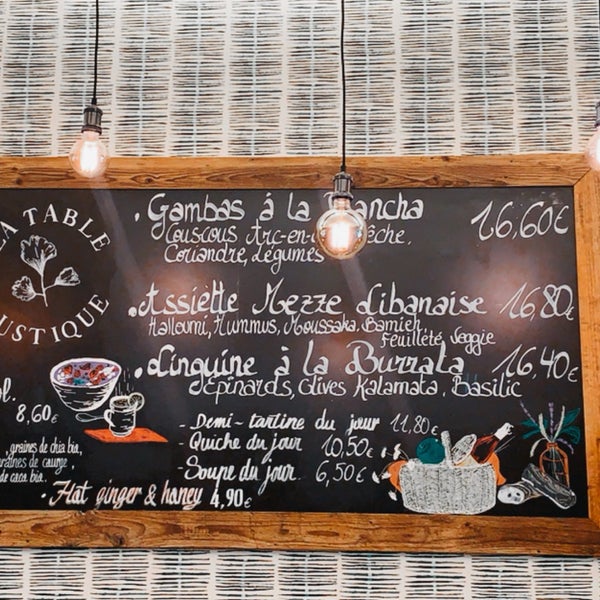 LA TABLE
RUSTIQUE
. Gambas á la
16,60€
Couscous Arc-en-
Coriandre, Légumes
. Assiètte Mezze Libanaise
16,80
Halloumi, Hummus, Moussaka, Bamieh
Feuilleté Veggie
. Linguine à la Burrata
16,40€
Epinards, Olives Kalamata, Basilic
- Demi-tartine du jour 11,80€
- Quiche du jour 10,50€
- Soupe du jour 6,50€
8,60€
, graines de chia bio,
graines de courge,
de caca bio.
. Hat ginger & haney 4,90€